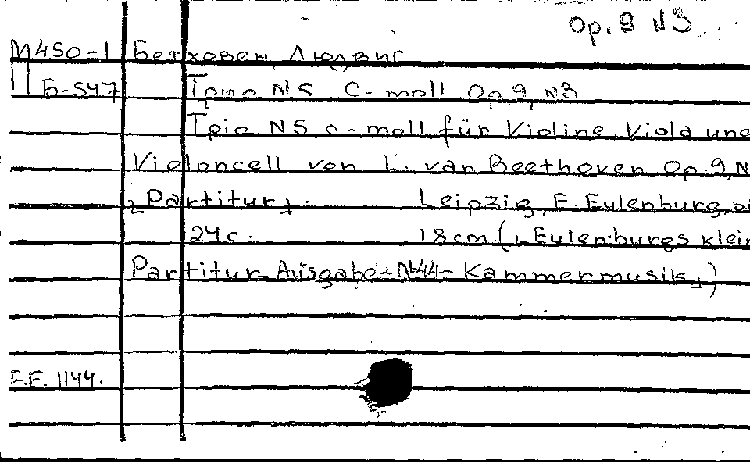 Op. 9 N3
M450-1 Бетховен, Людвиг
Б-547 Трио N5 C-moll Op 9, N3
Trio N5 c-moll für Violine, Viola und
Violoncell von L. van Beethoven Op. 9, N
Partitur. Leipzig, E. Eulenburg,
24c. 18cm (Eulenburgs klein
Partitur-Ausgabe-N44-Kammermusik)
E.E. 1144.